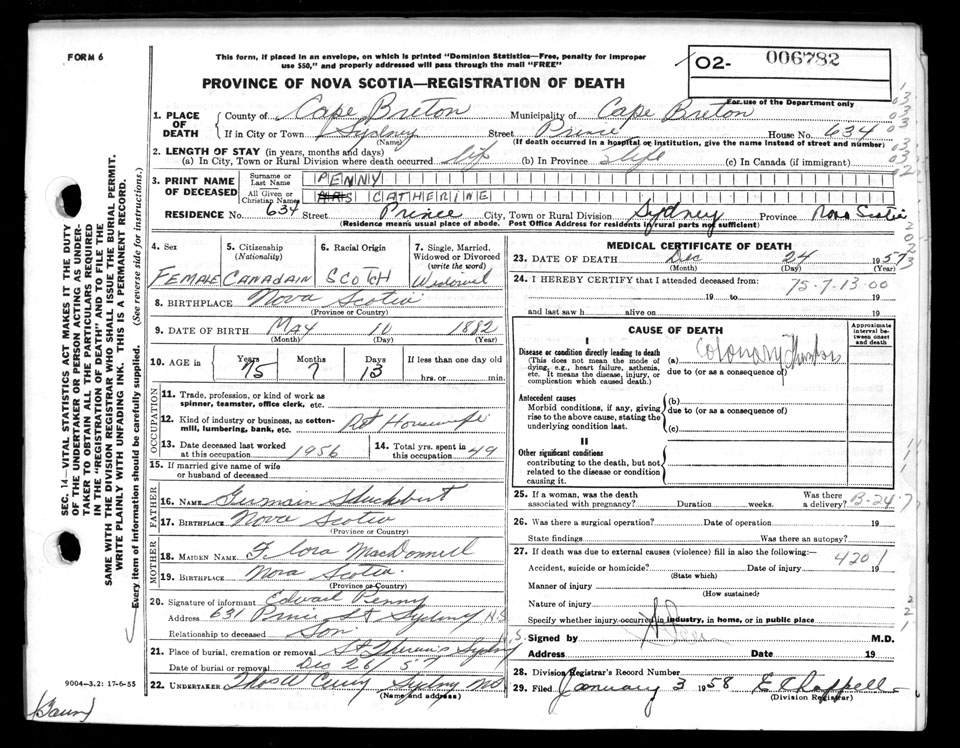 FORM 6
This form, if placed in an envelope, on which is printed "Dominion Statistics—Free, penalty for improper
use $50," and properly addressed will pass through the mail "FREE"
PROVINCE OF NOVA SCOTIA—REGISTRATION OF DEATH
02- 006782
For use of the Department only
1. PLACE OF DEATH
County of Cape Breton Municipality of Cape Breton
If in City or Town Sydney Street Prince House No. 634
(Name) (If death occurred in a hospital or institution, give the name instead of street and number)
2. LENGTH OF STAY (in years, months and days)
(a) In City, Town or Rural Division where death occurred life (b) In Province life (c) In Canada (if immigrant)
3. PRINT NAME OF DECEASED
Surname or Last Name PENNY
All Given or Christian Names CATHERINE
RESIDENCE No. 634 Street Prince City, Town or Rural Division Sydney Province Nova Scotia
(Residence means usual place of abode. Post Office Address for residents in rural parts not sufficient)
4. Sex 5. Citizenship (Nationality) 6. Racial Origin 7. Single, Married, Widowed or Divorced (write the word)
FEMALE CANADAIN SCOTCH Widowed
8. BIRTHPLACE Nova Scotia
(Province or Country)
9. DATE OF BIRTH May 10 1882
(Month) (Day) (Year)
10. AGE in Years Months Days If less than one day old
75 7 13 hrs. or min.
OCCUPATION
11. Trade, profession, or kind of work as spinner, teamster, office clerk, etc.
12. Kind of industry or business, as cotton-mill, lumbering, bank, etc. At Housewife
13. Date deceased last worked at this occupation 1956
14. Total yrs. spent in this occupation 49
15. If married give name of wife or husband of deceased
FATHER
16. NAME Germain
17. BIRTHPLACE Nova Scotia
(Province or Country)
MOTHER
18. MAIDEN NAME Flora MacDonnell
19. BIRTHPLACE Nova Scotia
(Province or Country)
20. Signature of informant Edward Penny
Address 631 Prince St Sydney N.S.
Relationship to deceased Son
21. Place of burial, cremation or removal Sydney N.S.
Date of burial or removal Dec 26/57
22. UNDERTAKER Thos W Curry Sydney NS
(Name and address)
MEDICAL CERTIFICATE OF DEATH
23. DATE OF DEATH Dec 24 1957
(Month) (Day) (Year)
24. I HEREBY CERTIFY that I attended deceased from:
75-7-13-00
19 to 19
and last saw h alive on 19
CAUSE OF DEATH
Approximate interval between onset and death
I
Disease or condition directly leading to death
(This does not mean the mode of dying, e.g., heart failure, asthenia, etc. It means the disease, injury, or complication which caused death.)
(a) Coronary
due to (or as a consequence of)
Antecedent causes
Morbid conditions, if any, giving rise to the above cause, stating the underlying condition last.
(b)
due to (or as a consequence of)
(c)
II
Other significant conditions
contributing to the death, but not related to the disease or condition causing it.
25. If a woman, was the death associated with pregnancy? Duration weeks. Was there a delivery? B-24-7
26. Was there a surgical operation? Date of operation 19
State findings Was there an autopsy?
27. If death was due to external causes (violence) fill in also the following:—
4201
Accident, suicide or homicide? Date of injury 19
(State which)
Manner of injury
(How sustained)
Nature of injury
Specify whether injury occurred in industry, in home, or in public place
Signed by M.D.
Address Date 19
28. Division Registrar's Record Number
29. Filed January 3 1958 E Chappell
(Division Registrar)
SEC. 14—VITAL STATISTICS ACT MAKES IT THE DUTY
OF THE UNDERTAKER OR PERSON ACTING AS UNDER-
TAKER TO OBTAIN ALL THE PARTICULARS REQUIRED
IN THE "REGISTRATION OF DEATH" AND TO FILE THE
SAME WITH THE DIVISION REGISTRAR WHO SHALL ISSUE THE BURIAL PERMIT.
WRITE PLAINLY WITH UNFADING INK. THIS IS A PERMANENT RECORD.
Every item of information should be carefully supplied. (See reverse side for instructions.)
9004—3.2: 17-6-55